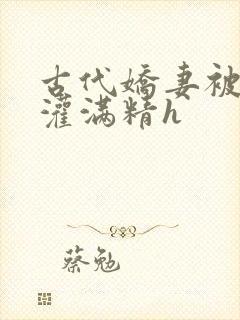 古代嬌妻被
灌滿精h
蔡勉